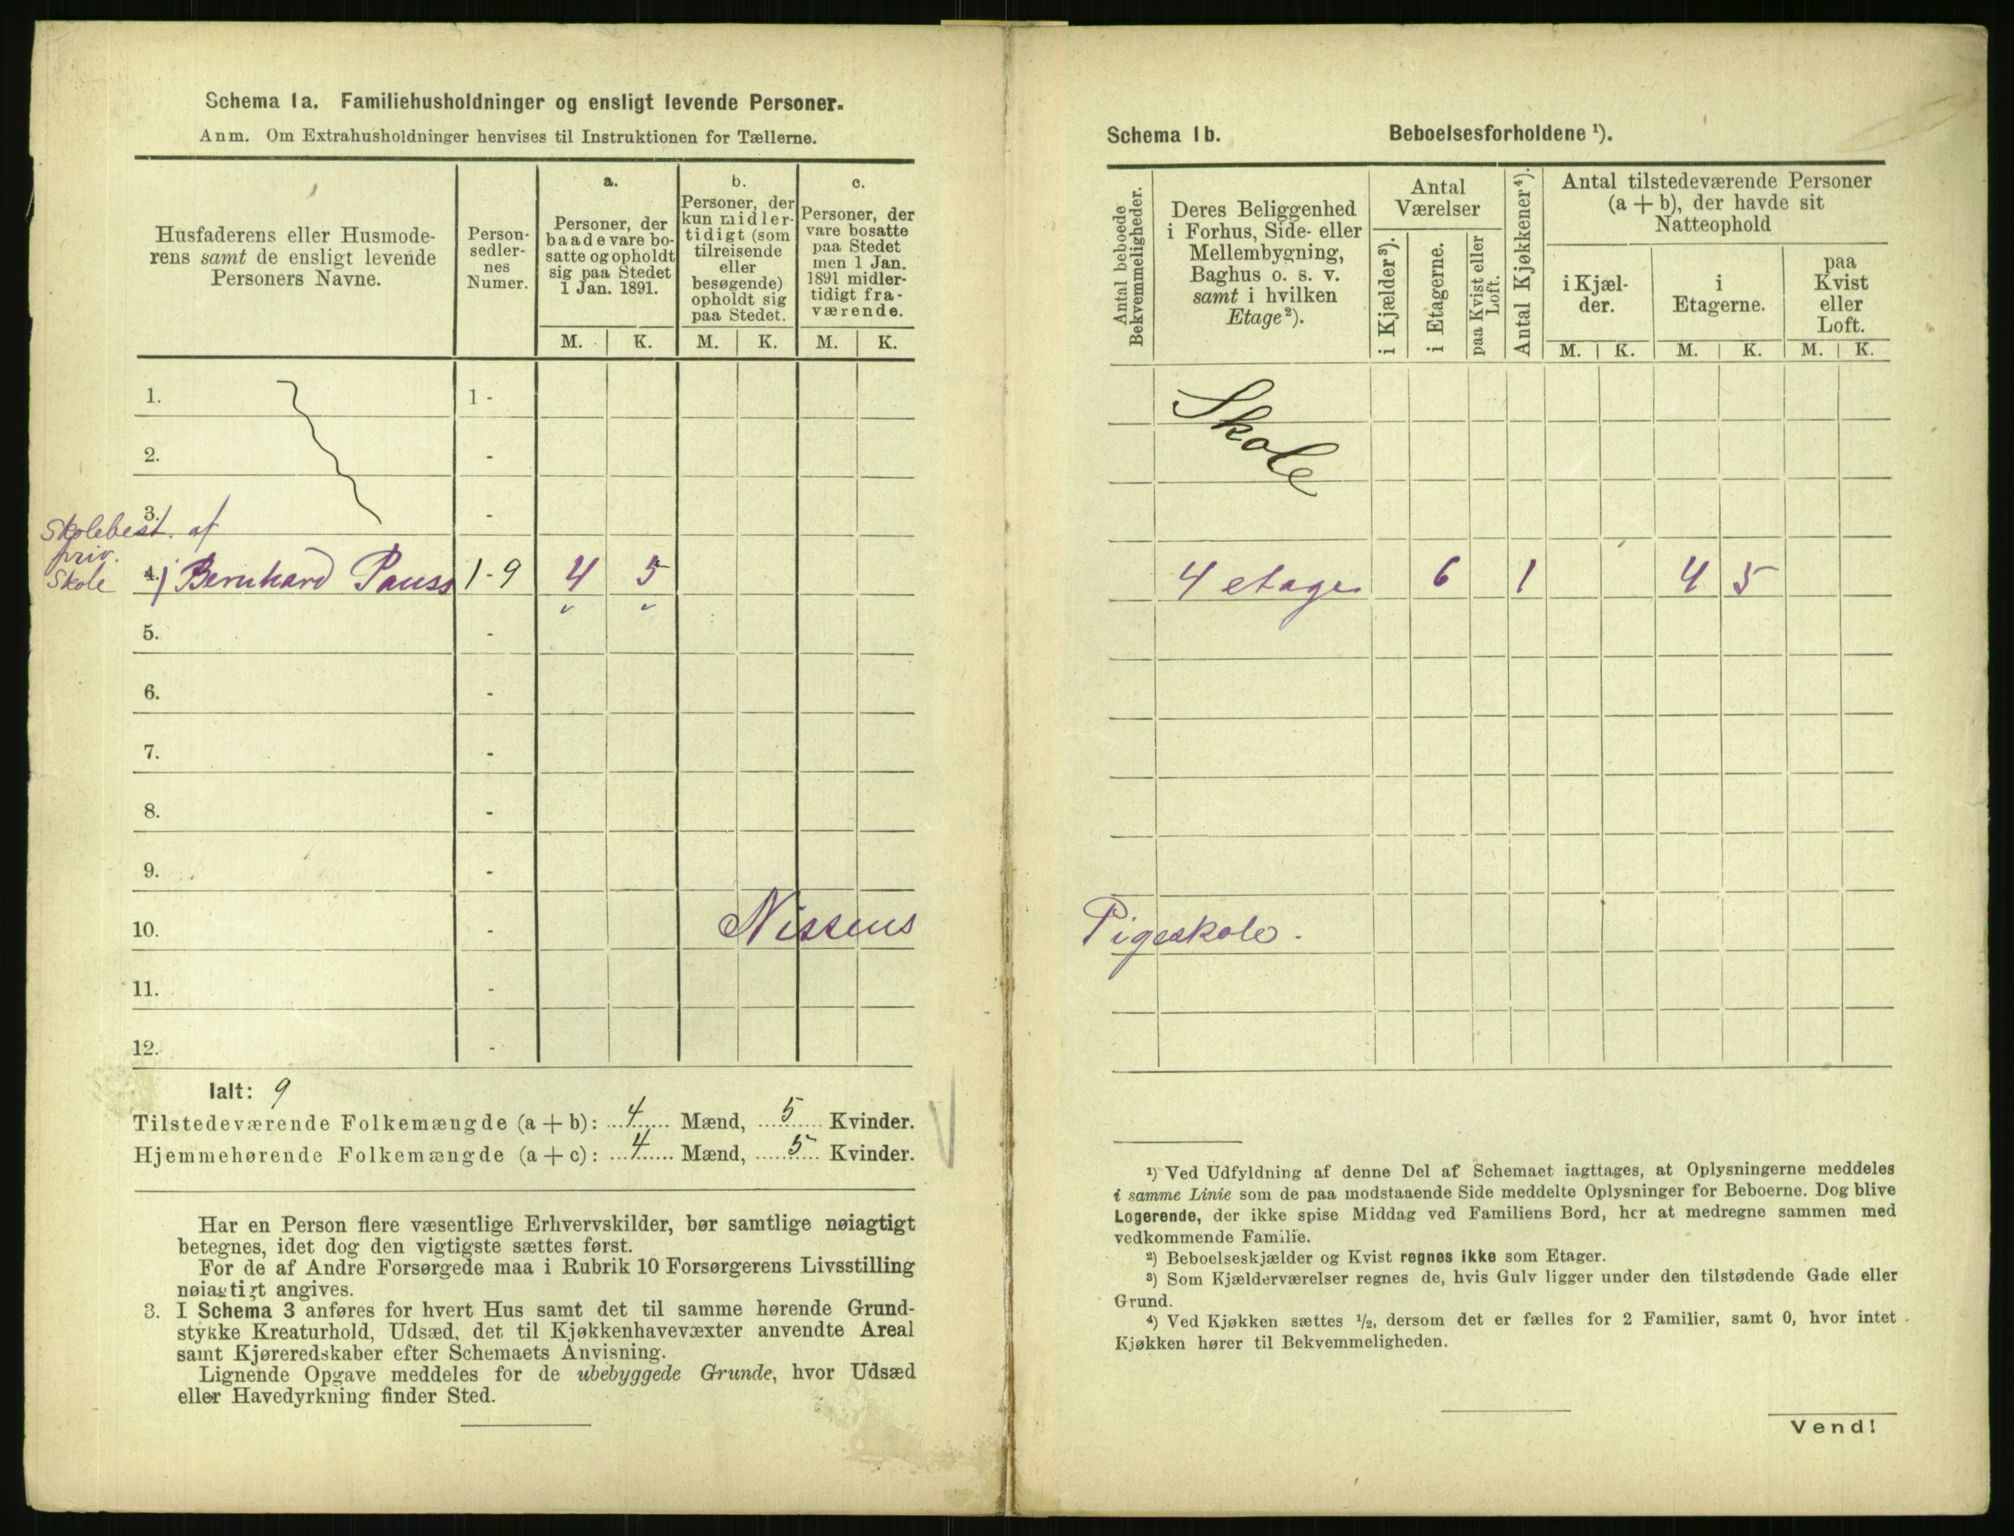 Schema 1a. Familiehusholdninger og ensligt levende Personer.
Anm. Om Extrahusholdninger henvises til Instruktionen for Tællerne.
Husfaderens eller Husmode-
rens samt de ensligt levende
Personers Navne.
Person-
sedler-
nes
Numer.
a.
Personer, der
baade vare bo-
satte og opholdt
sig paa Stedet
1 Jan. 1891.
b.
Personer, der
kun midler-
tidigt (som
tilreisende
eller
besøgende)
opholdt sig
paa Stedet.
c.
Personer, der
vare bosatte
paa Stedet
men 1 Jan.
1891 midler-
tidigt fra-
værende.
M. K. M. K. M. K.
1. 1 -
2. -
3. -
Skolebest. af
priv.
Skole
4. Bernhard Pauss 1 - 9 4 5
5. -
6. -
7. -
8. -
9. -
10. - Nissens
11. -
12. -
Ialt: 9
Tilstedeværende Folkemængde (a + b): 4 Mænd, 5 Kvinder.
Hjemmehørende Folkemængde (a + c): 4 Mænd, 5 Kvinder.
Har en Person flere væsentlige Erhvervskilder, bør samtlige nøiagtigt
betegnes, idet dog den vigtigste sættes først.
For de af Andre Forsørgede maa i Rubrik 10 Forsørgerens Livsstilling
nøiagtigt angives.
3. I Schema 3 anføres for hvert Hus samt det til samme hørende Grund-
stykke Kreaturhold, Udsæd, det til Kjøkkenhavevæxter anvendte Areal
samt Kjøreredskaber efter Schemaets Anvisning.
Lignende Opgave meddeles for de ubebyggede Grunde, hvor Udsæd
eller Havedyrkning finder Sted.
Schema 1b. Beboelsesforholdene ¹).
Antal beboede
Bekvemmeligheder.
Deres Beliggenhed
i Forhus, Side- eller
Mellembygning,
Baghus o. s. v.
samt i hvilken
Etage²).
Antal
Værelser
i Kjælder³).
i Etagerne.
paa Kvist eller
Loft.
Antal Kjøkkener⁴).
Antal tilstedeværende Personer
(a + b), der havde sit
Natteophold
i Kjæl-
der.
i
Etagerne.
paa
Kvist
eller
Loft.
M. K. M. K. M. K.
Skole
4 etage 6 1 4 5
Pigeskole.
¹) Ved Udfyldning af denne Del af Schemaet iagttages, at Oplysningerne meddeles
i samme Linie som de paa modstaaende Side meddelte Oplysninger for Beboerne. Dog blive
Logerende, der ikke spise Middag ved Familiens Bord, her at medregne sammen med
vedkommende Familie.
²) Beboelseskjælder og Kvist regnes ikke som Etager.
³) Som Kjælderværelser regnes de, hvis Gulv ligger under den tilstødende Gade eller
Grund.
⁴) Ved Kjøkken sættes ½, dersom det er fælles for 2 Familier, samt 0, hvor intet
Kjøkken hører til Bekvemmeligheden.
Vend!